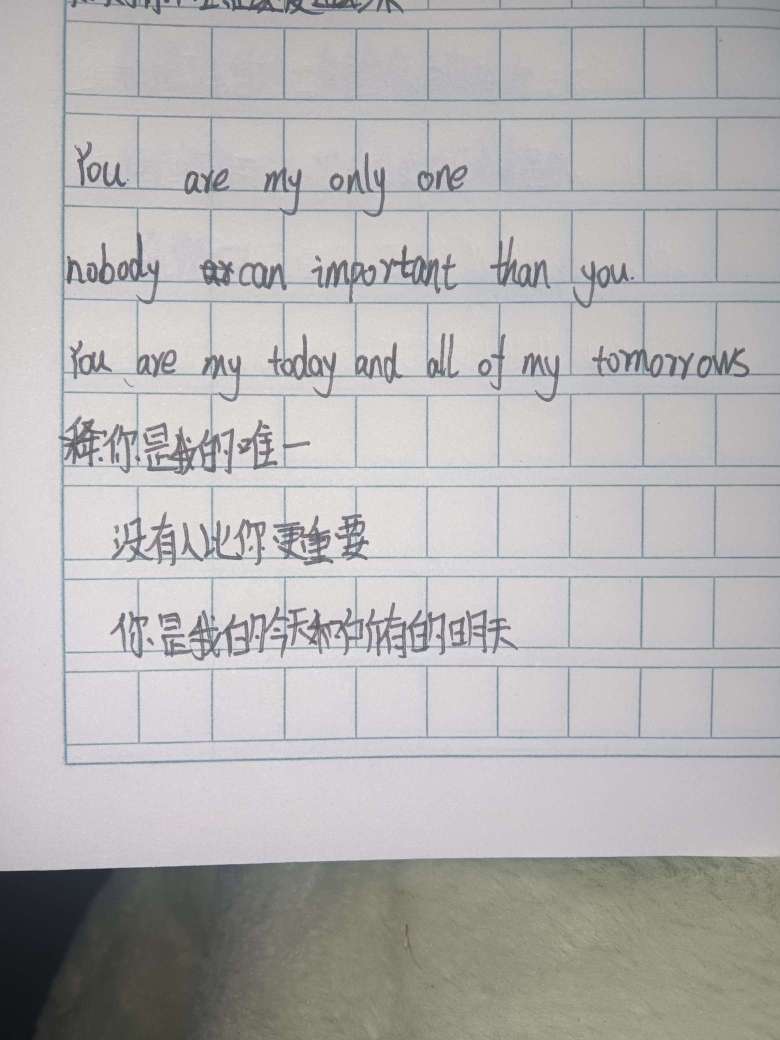 You are my only one
nobody can important than you.
You are my today and all of my tomorrows
释:你是我的唯一
没有人比你更重要
你是我的今天和所有的明天